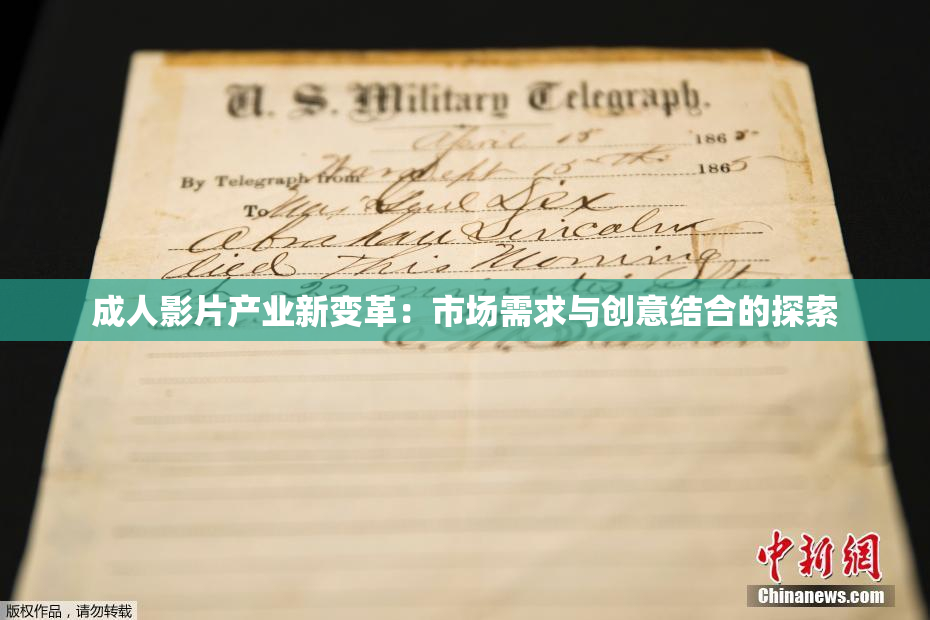 U. S. Military Telegraph.
April 15 1865
By Telegraph from War Dept 15th 1865
To Maj Genl Dix
Abraham Lincoln
died This Morning
22 minutes after
成人影片产业新变革：市场需求与创意结合的探索
中新网
Chinanews.com
版权作品，请勿转载